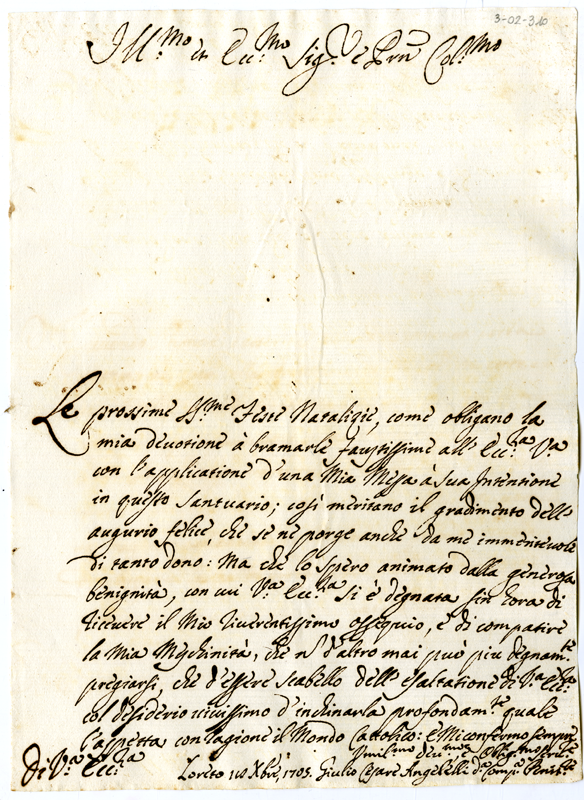 3-02-310
Ill.mo et Ecc.mo Sig.r e Prn Col.mo
Le prossime SS.me Feste Natalizie, come obligano la
mia devotione à bramarle faustissime all' Ecc.za V.a
con l'applicatione d'una Mia Messa à sua Intentione
in questo Santuario; così meritano il gradimento dell'
augurio felice, che se ne porge anche da me immeritevole
di tanto dono: Ma che lo spero animato dalla generosa
benignità, con cui V.a Ecc.za si è degnata sin hora di
ricevere il Mio riverentissimo ossequio, e di compatire
la Mia Meschinità, che n. d'altro mai può più degnam.te
pregiarsi, che d'essere scabello dell' esaltatione di V.a Ecc.za
col desiderio vivissimo d'inchinarla profondam.te quale
l'aspetta con ragione il Mondo Cattolico: e Mi confermo sempre
Di V.a Ecc.za
Loreto Xbre, 1703. Giulio Cesare Angelelli d.a Comp.a Penit.re